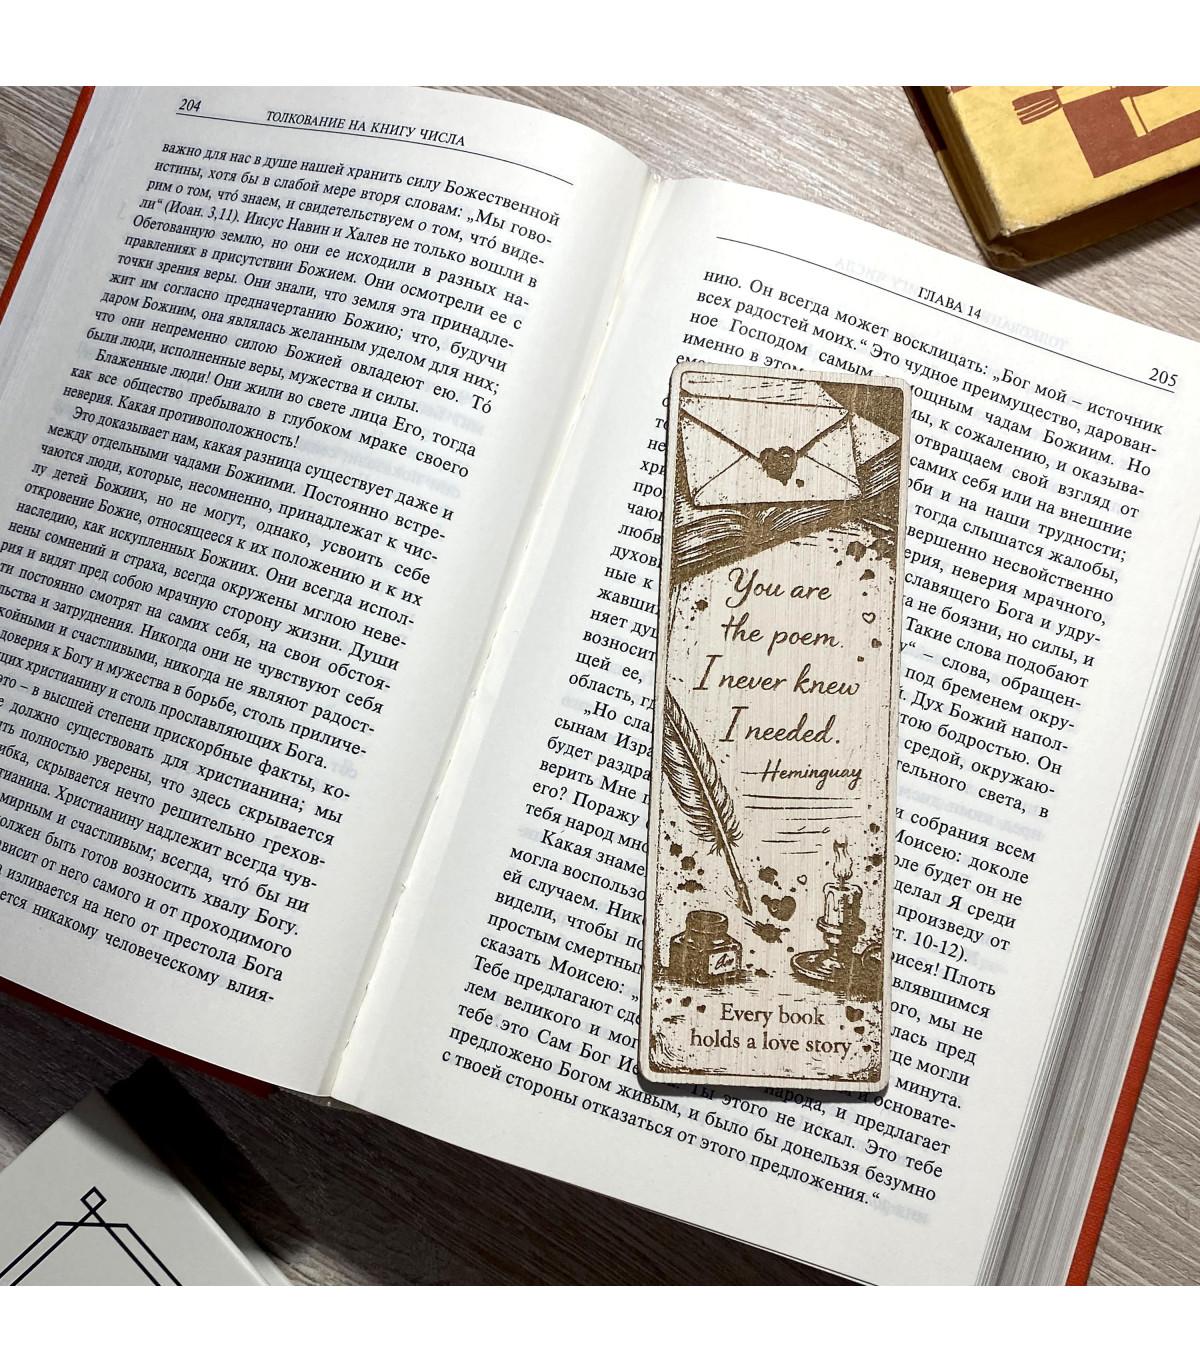 204
ТОЛКОВАНИЕ НА КНИГУ ЧИСЛА
важно для нас в душе нашей хранить силу Божественной
истины, хотя бы в слабой мере вторя словам: „Мы гово-
рим о том, что́ знаем, и свидетельствуем о том, что́ виде-
ли“ (Иоан. 3,11). Иисус Навин и Халев не только вошли в
Обетованную землю, но они ее исходили в разных на-
правлениях в присутствии Божием. Они осмотрели ее с
точки зрения веры. Они знали, что земля эта принадле-
жит им согласно предначертанию Божию; что, будучи
даром Божиим, она являлась желанным уделом для них;
что они непременно силою Божией овладеют ею. То́
были люди, исполненные веры, мужества и силы.
Блаженные люди! Они жили во свете лица Его, тогда
как все общество пребывало в глубоком мраке своего
неверия. Какая противоположность!
Это доказывает нам, какая разница существует даже и
между отдельными чадами Божиими. Постоянно встре-
чаются люди, которые, несомненно, принадлежат к чис-
лу детей Божиих, но не могут, однако, усвоить себе
откровение Божие, относящееся к их положению и к их
наследию, как искупленных Божиих. Они всегда испол-
нены сомнений и страха, всегда окружены мглою неве-
рия и видят пред собою мрачную сторону жизни. Души
ти постоянно смотрят на самих себя, на свои обстоя-
льства и затруднения. Никогда они не чувствуют себя
койными и счастливыми, никогда не являют радост-
доверия к Богу и мужества в борьбе, столь приличе-
щих христианину и столь прославляющих Бога.
это – в высшей степени прискорбные факты, ко-
е должно существовать для христианина; мы
ть полностью уверены, что здесь скрывается
ибка, скрывается нечто решительно грехов-
тианина. Христианину надлежит всегда чув-
мирным и счастливым; всегда, что́ бы ни
олжен быть готов возносить хвалу Богу.
ависит от него самого и от проходимого
а изливается на него от престола Бога
ется никакому человеческому влия-
ГЛАВА 14
205
нию. Он всегда может восклицать: „Бог мой – источник
всех радостей моих.“ Это чудное преимущество, дарован-
ное Господом самым мощным чадам Божиим. Но
именно в этом мы, к сожалению, и оказыва-
отвращаем свой взгляд от
самих себя или на внешние
рби и на наши трудности;
тогда слышатся жалобы,
вершенно несвойственно
ерия, неверия мрачного,
славящего Бога и удру-
а не боязни, но силы, и
Такие слова подобают
у“ – слова, обращен-
под бременем окру-
й. Дух Божий напол-
тою бодростью. Он
средой, окружаю-
тельного света, в
про
чают
любв
духов
ные к
жавших
няет душ
возносит
щей ее,
область, г
„Но сла
сынам Изра
будет раздра
верить Мне п
его? Поражу
тебя народ мно
Ка́кая знаме
могла воспользо
ей случаем. Ник
видели, чтобы по
простым смертным
сказать Моисею: „
Тебе предлагают сде
лем великого и мог
тебе это Сам Бог Ие
и собрания всем
Моисею: доколе
оле будет он не
делал Я среди
произведу от
ст. 10-12).
исея! Плоть
влявшимся
ого, мы не
лась пред
ще могли
минута.
и основате-
предложено Богом живым, и было бы донельзя безумно
с твоей стороны отказаться от этого предложения.“
Ты этого не искал. Это тебе
народа, и предлагает
You are
the poem
I never knew
I needed.
—Heminguay
Every book
holds a love story.